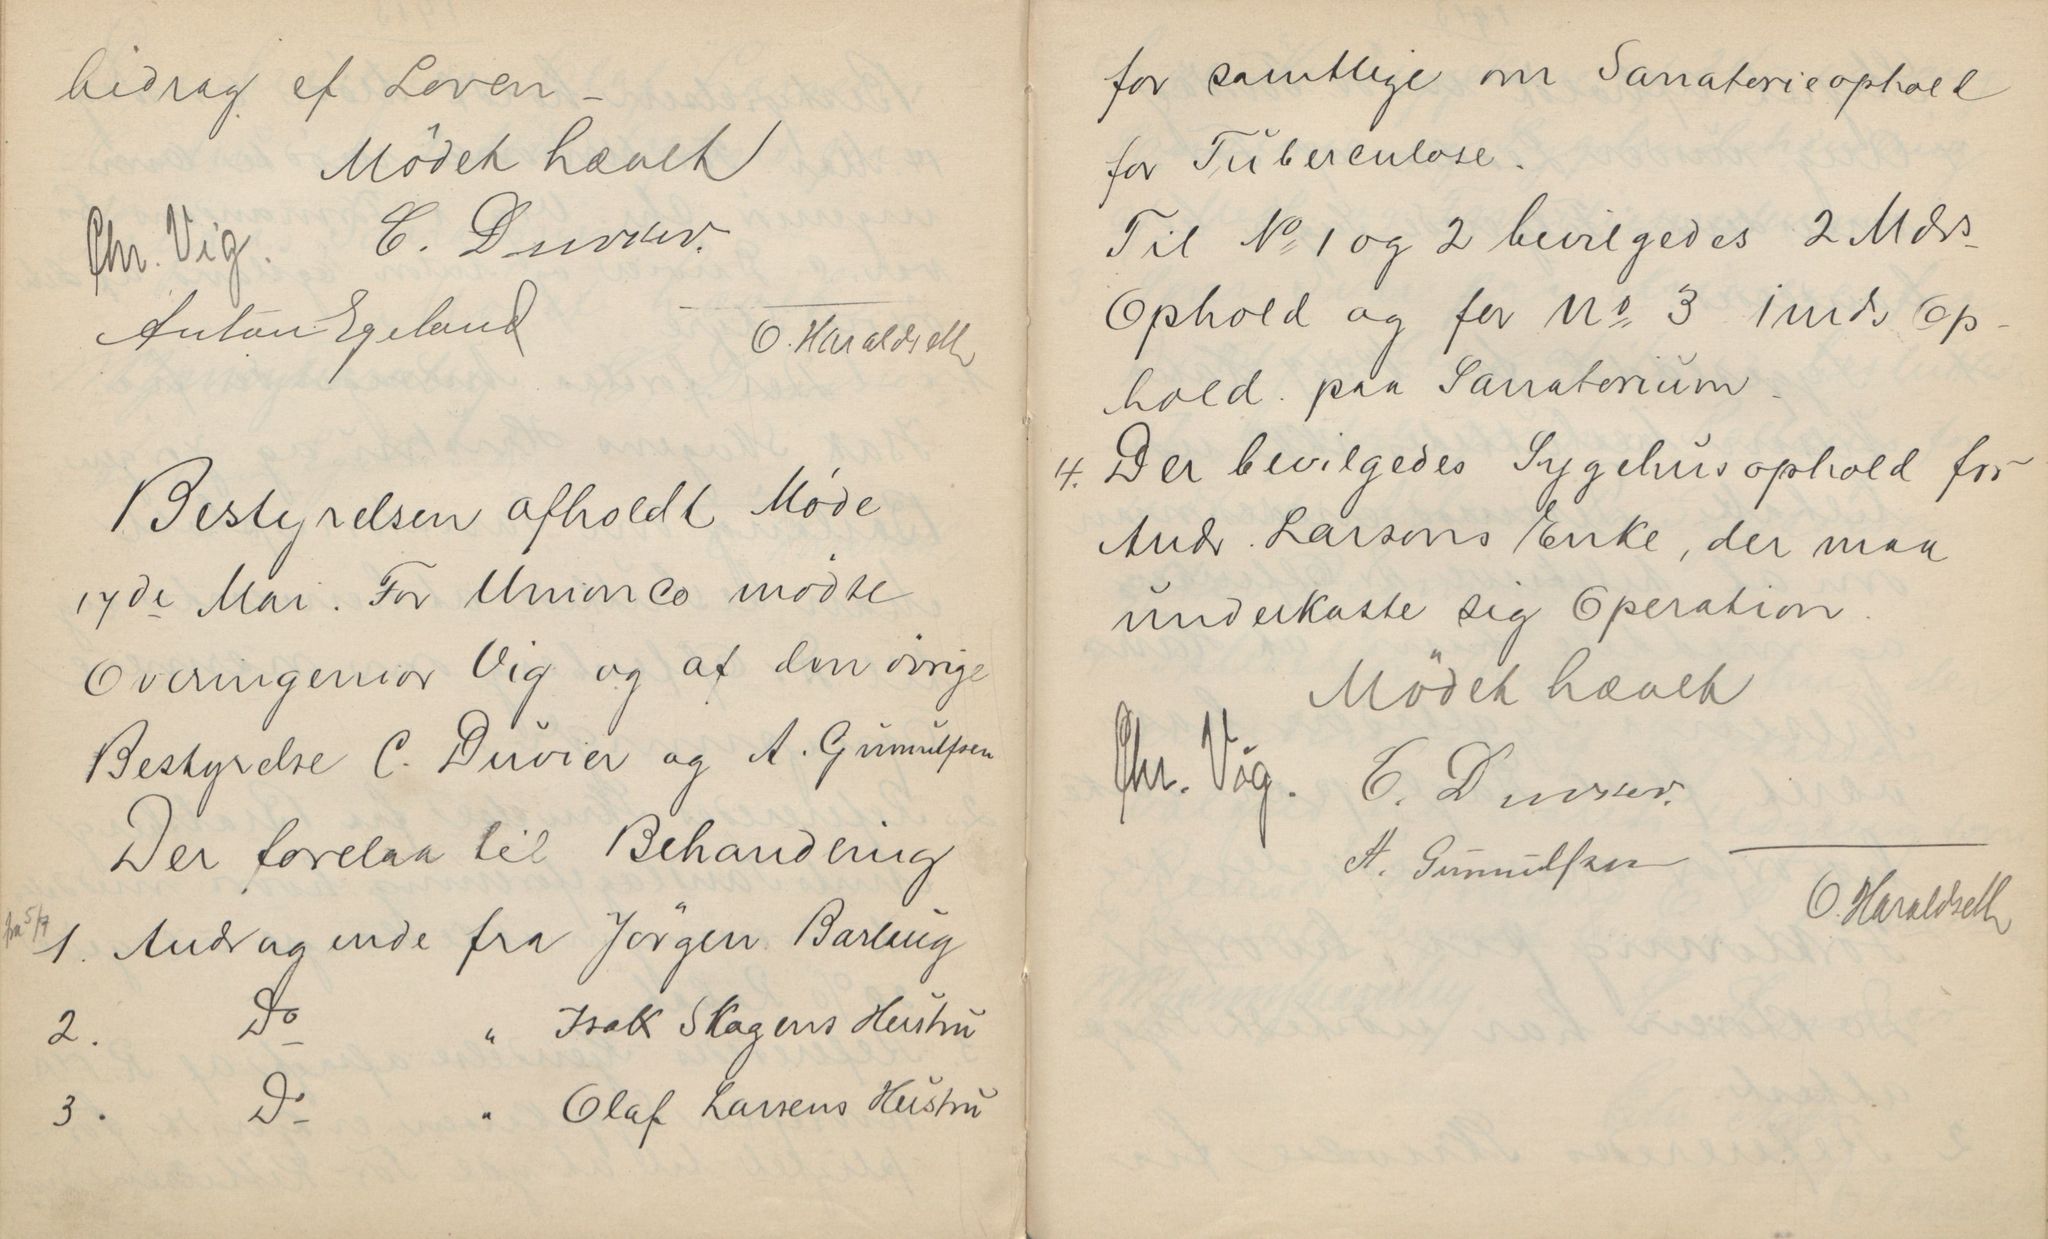 bidrag ef Loven –
Mödet hævet
Chr. Vig. C. Duvier.
Anton Egeland
O. Haraldseth
Bestyrelsen afholdt Møde
17de Mai. For Union Co mödte
Overingeniør Vig og af den övrige
Bestyrelse C. Duvier og A. Gunnulfsen
Der forelaa til Behandling
fra 5/7
1. Andragende fra Jörgen Barlaug
2. Do " Isak Skagens Hustru
3. Do " Olaf Larsens Hustru
for samtlige om Sanatorieophold
for Tuberculose.
Til No 1 og 2 bevilgedes 2 Mdrs
Ophold og for No 3 1 mds Op-
hold paa Sanatorium.
4. Der bevilgedes Sygehusophold for
Andr. Larsons Enke, der maa
underkaste sig Operation.
Mödet hævet
Chr. Vig. C. Duvier.
A. Gunnulfsen
O. Haraldseth